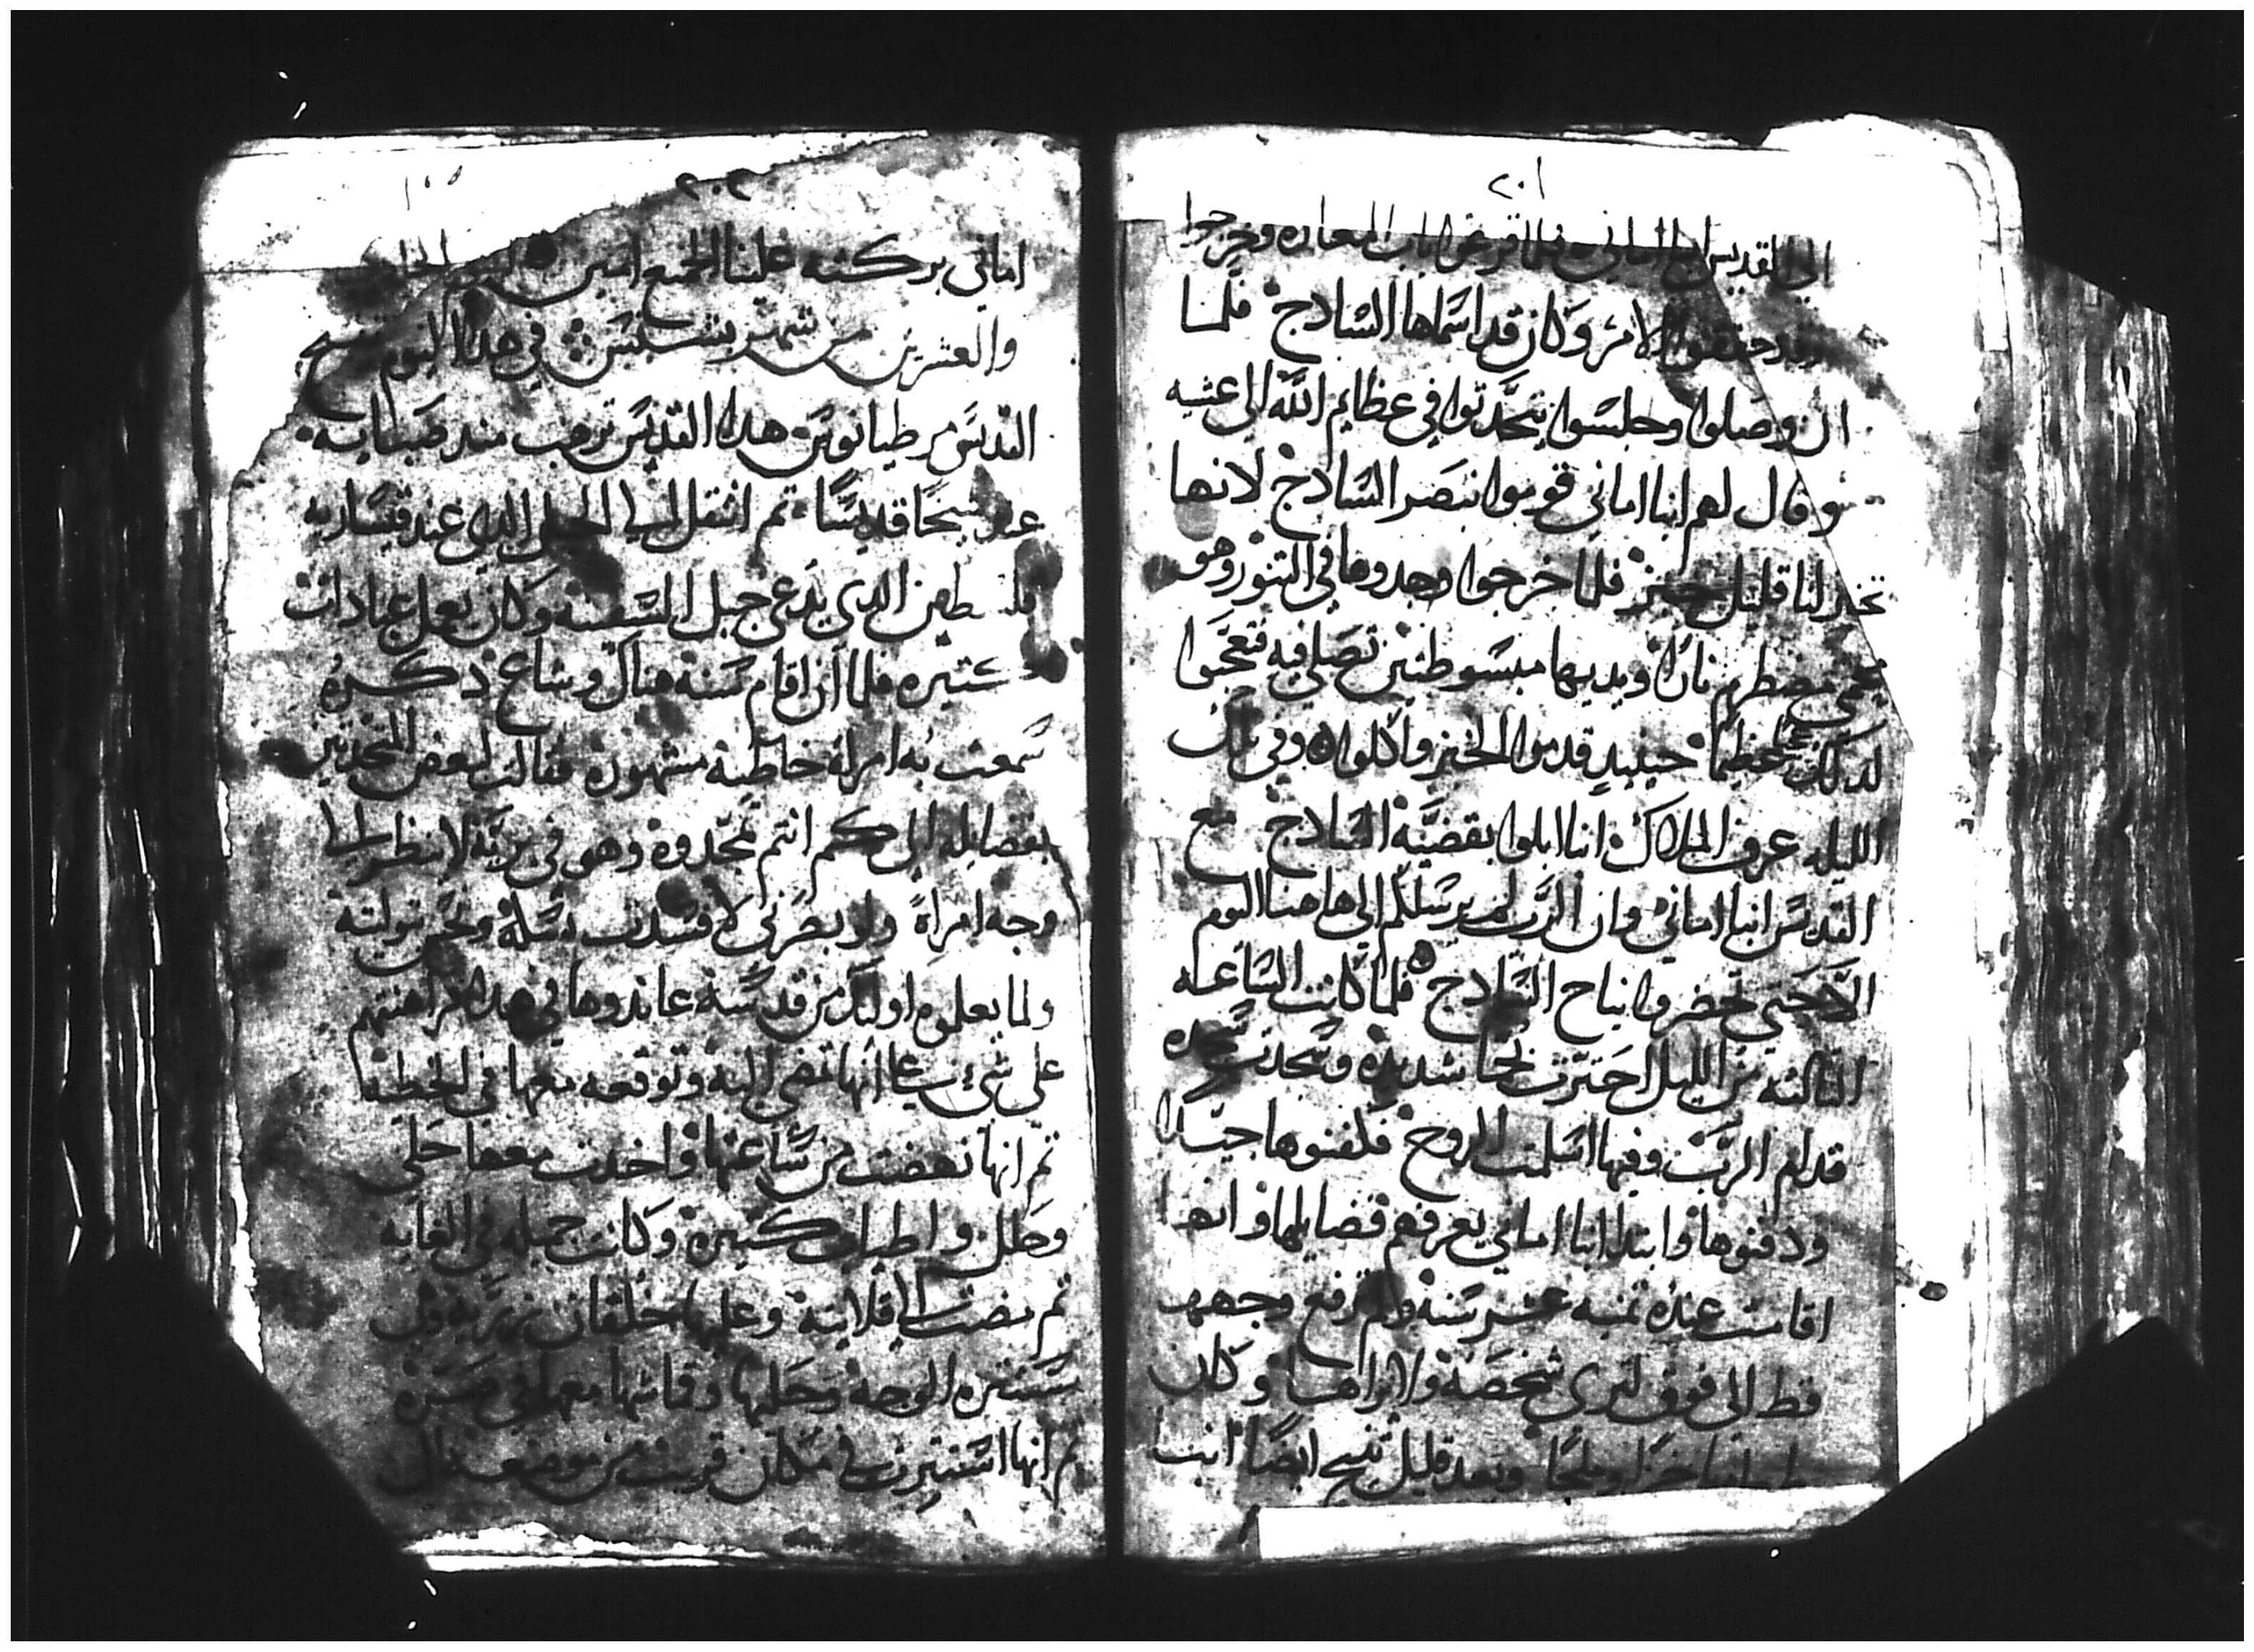 ٢٠١
الي القديس انبا اماني فلما قرعوا باب المغاره وخرجوا
حققوا الامر وكان قد اسماها الساذج فلما
ان وصلوا وجلسوا يتحدثوا في عظايم الله الي عشيه
وقال لهم انبا اماني قوموا نبصر الساذج لانها
تخبز لنا قليل خبز فلما خرجوا وجدوها في التنور وهو
يحمي مضطرم نارًا ويديها مبسوطتين تصلي فيه فتعجبوا
لذلك عظيمًا حينيدٍ قدموا الخبز واكلوا وفي تلك
الليله عرف الملاك انبا ابلوا بقضيّة الساذج مع
القديس انبا اماني وان الرب لم يرسلكم الي هاهنا اليوم
الا حتي تحضروا نياح الساذج فلما كانت الساعه
الثالثه من الليل احترت شديده وسجدت سجده
قدام الرب وفيها اسلمت الروح فكفنوها جيدًا
ودفنوها وابتدا انبا اماني يعرفهم فضايلها وانها
اقامت عنده تمنيه عشر سنة ولم ترفع وجهها
قط الي فوق لتري شخصه ولا يراها وكان
خبزًا وملحًا وبعد قليل تنيح ايضًا انبا
٢٠٢
اماني بركته علينا الجميع امين اليوم الحادي
والعشرين من شهر بشنس في هذا اليوم تنيح
القديس مرطيانوس هذا القديس ترهب منذ صبايه
عند شيخًا قديسًا ثم انتقل الي الجبل الذي عند قيساريه
فلسطين الذي يدعي جبل السفينه وكان يعمل عبادات
كثيره فلما ان اقام سنة هناك وشاع ذكره
سمعت به امراة خاطية مشهوره فقالت لبعض المتحدثين
بفضايله الي كم انتم تمجدوه وهو في برية لا ينظر اليها
وجه امراةً ولو بصرني لافسدت نسكه ونجست بتوليته
ولما يعلموه اوليك من قدسه عاندوها في هذا وراهنتهم
علي شيء علي انها تمضي اليه وتوقعه معها في الخطيه
ثم انها نهضت من ساعتها واخذت معها حلي
وحلل واطياب كثيره وكانت جميله في الغايه
ثم مضت الي قلايته وعليها خلقان مزريه وهي
مستتره الوجه وحليها وقماشها معها في صره
ثم انها استترت في مكان قريب من موضعه الي ان